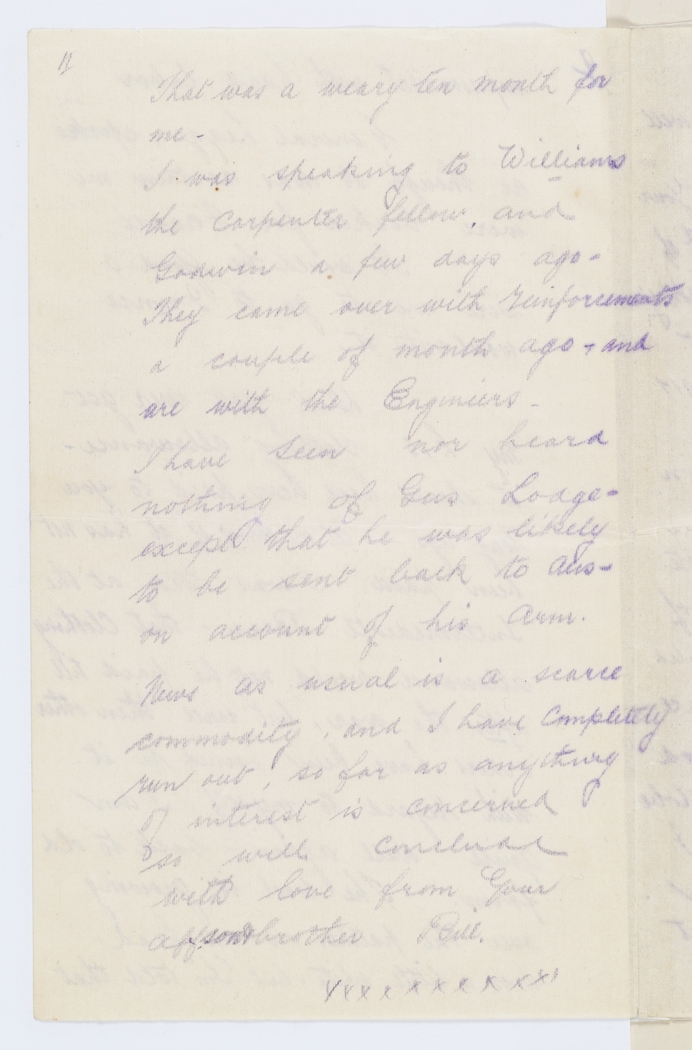 11
That was a weary ten month for
me -
I was speaking to Williams
the Carpenter fellow, and
Godwin a few days ago -
They came over with reinforcements
a couple of month ago - and
are with the Engineers -
I have seen nor heard
nothing of Gus Lodge -
except that he was likely
to be sent back to Aus -
on account of his Arm.
News as usual is a scarce
commodity, and I have Completely
run out, so far as anything
of interest is concerned
so will conclude
with love from Your
aff brother Bill.
x x x x x x x x x x